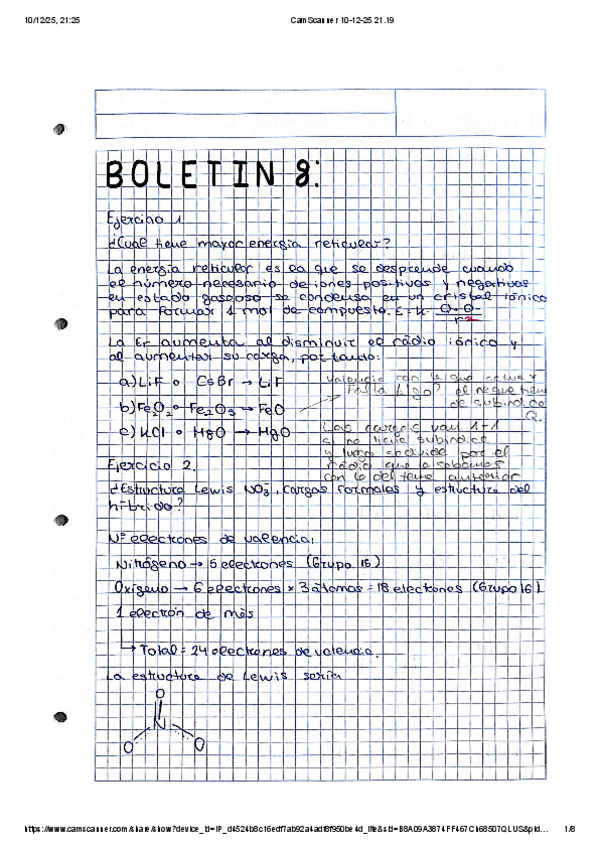 10/12/25, 21:25
CamScanner 10-12-25 21.19
BOLETIN 8:
Ejercicio 1
¿Cuál tiene mayor energía reticular?
La energía reticular es la que se desprende cuando
el número necesario de iones positivos y negativos
en estado gaseoso se condensa en un cristal iónico
para formar 1 mol de compuesto. E = K ·
La Er aumenta al disminuir el radio iónico y
al aumentar su carga, por tanto:
a) LiF o CsBr → LiF
b) Fe2O2 o Fe2O3 → FeO
c) KCl o MgO → MgO
valencia con la que actúa
el que tiene
de subíndice
Q.
Las cargas van 1-1
si no tiene subíndice
y luego se divide por el
radio que lo sabemos
con lo del tema anterior
Ejercicio 2.
¿Estructura Lewis NO3-, cargas formales y estructura del
híbrido?
Nº electrones de valencia:
Nitrógeno → 5 electrones (Grupo 15)
Oxígeno → 6 electrones × 3 átomos = 18 electrones (Grupo 16)
1 electrón de más
→ Total = 24 electrones de valencia.
La estructura de Lewis sería
O
N
O O
1/8